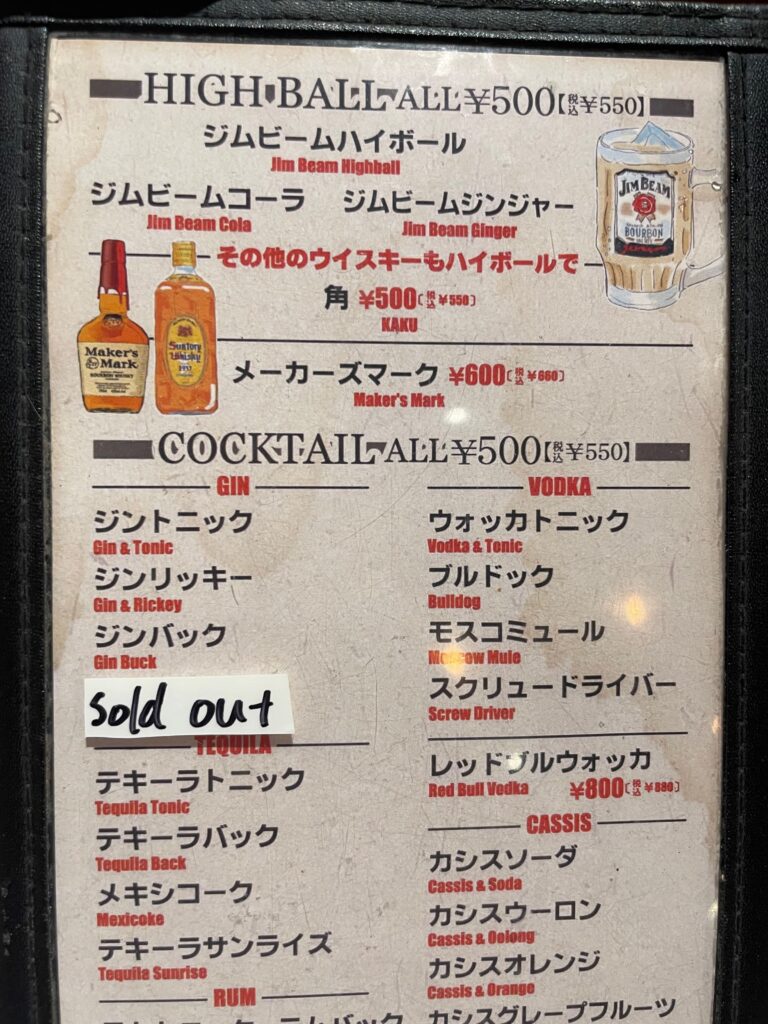 HIGH BALL ALL ¥500【税込¥550】
ジムビームハイボール
Jim Beam Highball
ジムビームコーラ
Jim Beam Cola
ジムビームジンジャー
Jim Beam Ginger
JIM BEAM
BOURBON
その他のウイスキーもハイボールで
角 ¥500〔税込¥550〕
KAKU
Maker's
Mark
Suntory
Whisky
1937
メーカーズマーク ¥600〔税込¥660〕
Maker's Mark
COCKTAIL ALL ¥500【税込¥550】
GIN
ジントニック
Gin & Tonic
ジンリッキー
Gin & Rickey
ジンバック
Gin Buck
sold out
TEQUILA
テキーラトニック
Tequila Tonic
テキーラバック
Tequila Back
メキシコーク
Mexicoke
テキーラサンライズ
Tequila Sunrise
RUM
VODKA
ウォッカトニック
Vodka & Tonic
ブルドック
Bulldog
モスコミュール
Moscow Mule
スクリュードライバー
Screw Driver
レッドブルウォッカ
Red Bull Vodka ¥800〔税込¥880〕
CASSIS
カシスソーダ
Cassis & Soda
カシスウーロン
Cassis & Oolong
カシスオレンジ
Cassis & Orange
カシスグレープフルーツ